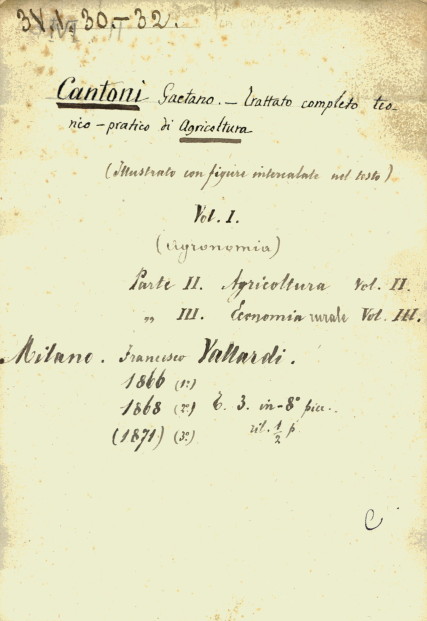 30.-32.
Cantoni Gaetano. - Trattato completo teo-
rico-pratico di Agricoltura
(Illustrato con figure intercalate nel testo)
Vol. I.
(Agronomia)
Parte II. Agricoltura Vol. II.
„ III. Economia rurale Vol. III.
Milano. Francesco Vallardi.
1866 (1º)
1868 (2º) T. 3. in-8º picc.
(1871) (3º) ril. ½ p.
C